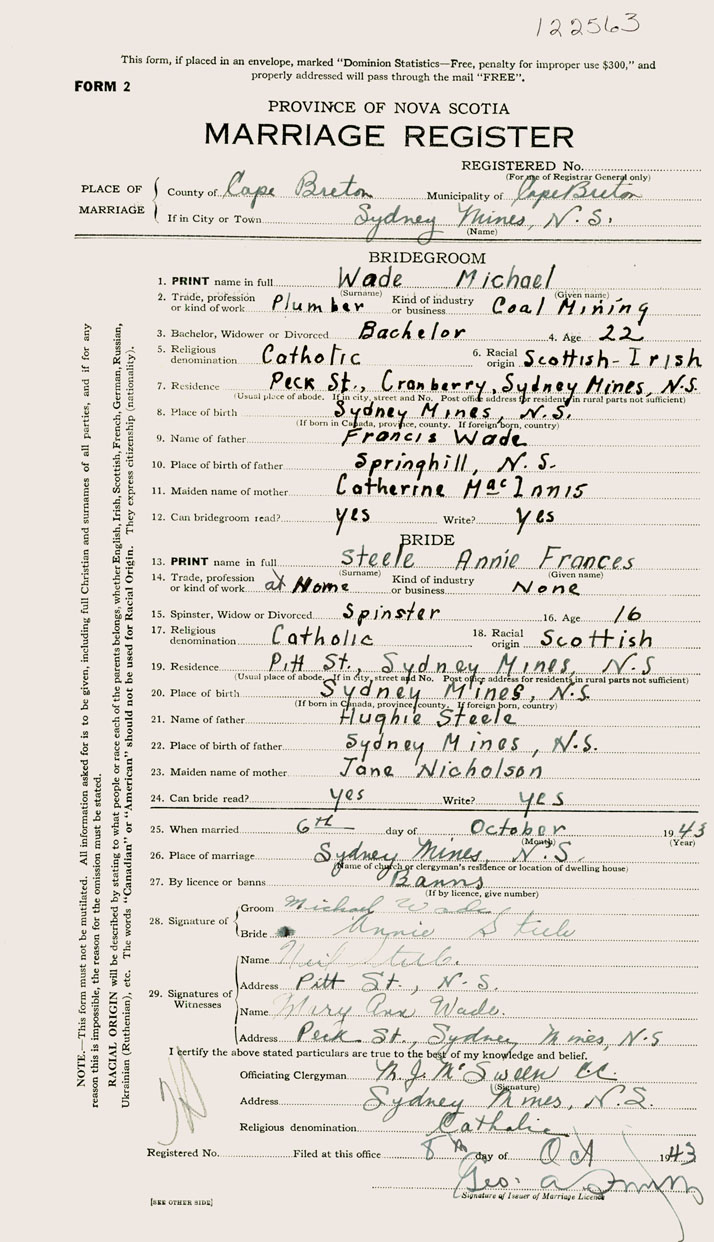 122563
This form, if placed in an envelope, marked "Dominion Statistics—Free, penalty for improper use $300," and
properly addressed will pass through the mail "FREE".
FORM 2
PROVINCE OF NOVA SCOTIA
MARRIAGE REGISTER
REGISTERED No.
(For use of Registrar General only)
PLACE OF MARRIAGE
County of Cape Breton Municipality of Cape Breton
If in City or Town Sydney Mines, N.S.
(Name)
BRIDEGROOM
1. PRINT name in full Wade Michael
(Surname) (Given name)
2. Trade, profession or kind of work Plumber Kind of industry or business Coal Mining
3. Bachelor, Widower or Divorced Bachelor 4. Age 22
5. Religious denomination Catholic 6. Racial origin Scottish-Irish
7. Residence Peck St., Cranberry, Sydney Mines, N.S.
(Usual place of abode. If in city, street and No. Post office address for residents in rural parts not sufficient)
8. Place of birth Sydney Mines, N.S.
(If born in Canada, province, county. If foreign born, country)
9. Name of father Francis Wade
10. Place of birth of father Springhill, N.S.
11. Maiden name of mother Catherine MacInnis
12. Can bridegroom read? yes Write? yes
BRIDE
13. PRINT name in full Steele Annie Frances
(Surname) (Given name)
14. Trade, profession or kind of work at Home Kind of industry or business None
15. Spinster, Widow or Divorced Spinster 16. Age 16
17. Religious denomination Catholic 18. Racial origin Scottish
19. Residence Pitt St., Sydney Mines, N.S
(Usual place of abode. If in city, street and No. Post office address for residents in rural parts not sufficient)
20. Place of birth Sydney Mines, N.S
(If born in Canada, province, county. If foreign born, country)
21. Name of father Hughie Steele
22. Place of birth of father Sydney Mines, N.S.
23. Maiden name of mother Jane Nicholson
24. Can bride read? yes Write? yes
25. When married 6th day of October 1943
(Month) (Year)
26. Place of marriage Sydney Mines, N.S.
(Name of church or clergyman's residence or location of dwelling house)
27. By licence or banns Banns
(If by licence, give number)
28. Signature of
Groom Michael Wade
Bride Annie Steele
29. Signatures of Witnesses
Name
Address Pitt St., N.S.
Name Mary Ann Wade.
Address Peck St., Sydney Mines, N.S
I certify the above stated particulars are true to the best of my knowledge and belief.
Officiating Clergyman M. J. McSween C.C.
(Signature)
Address Sydney Mines, N.S.
Religious denomination Catholic
Registered No. Filed at this office 8th day of Oct 1943
Geo. A
Signature of Issuer of Marriage Licence
[SEE OTHER SIDE]
NOTE.—This form must not be mutilated. All information asked for is to be given, including full Christian and surnames of all parties, and if for any
reason this is impossible, the reason for the omission must be stated.
RACIAL ORIGIN will be described by stating to what people or race each of the parents belongs, whether English, Irish, Scottish, French, German, Russian,
Ukrainian (Ruthenian), etc. The words "Canadian" or "American" should not be used for Racial Origin. They express citizenship (nationality).